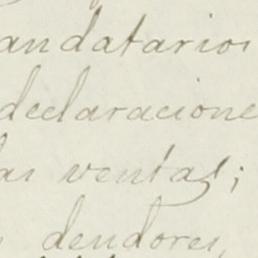 andatarios
declaracione
as ventas;
deudores,